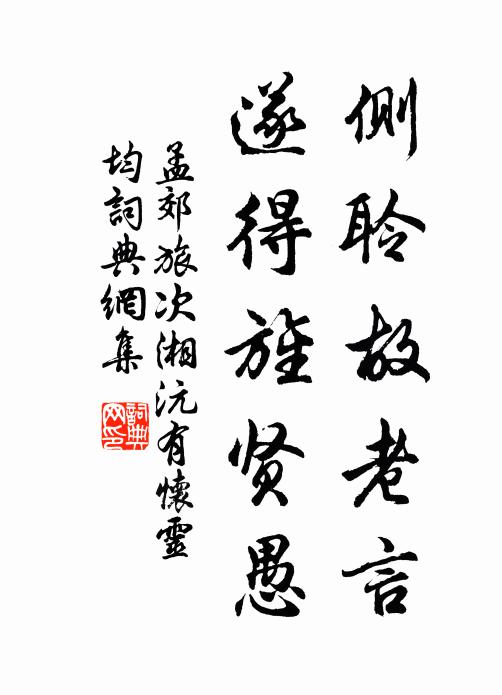 侧聆故老言
遂得旌贤愚
孟郊旅次湘沅有懷靈
均詞典網集
詞典
网印